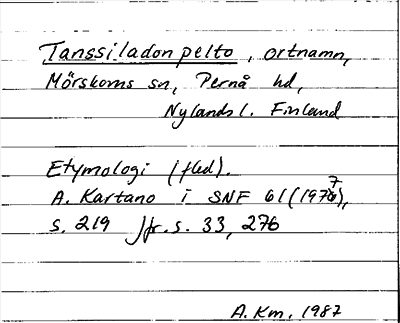 Tanssiladon pelto, ortnamn,
Mörskoms sn, Pernå hd,
Nylands l. Finland
Etymologi (fled).
A. Kartano i SNF 61 (1977),
s. 219 Jfr. s. 33, 276
A. Km, 1987